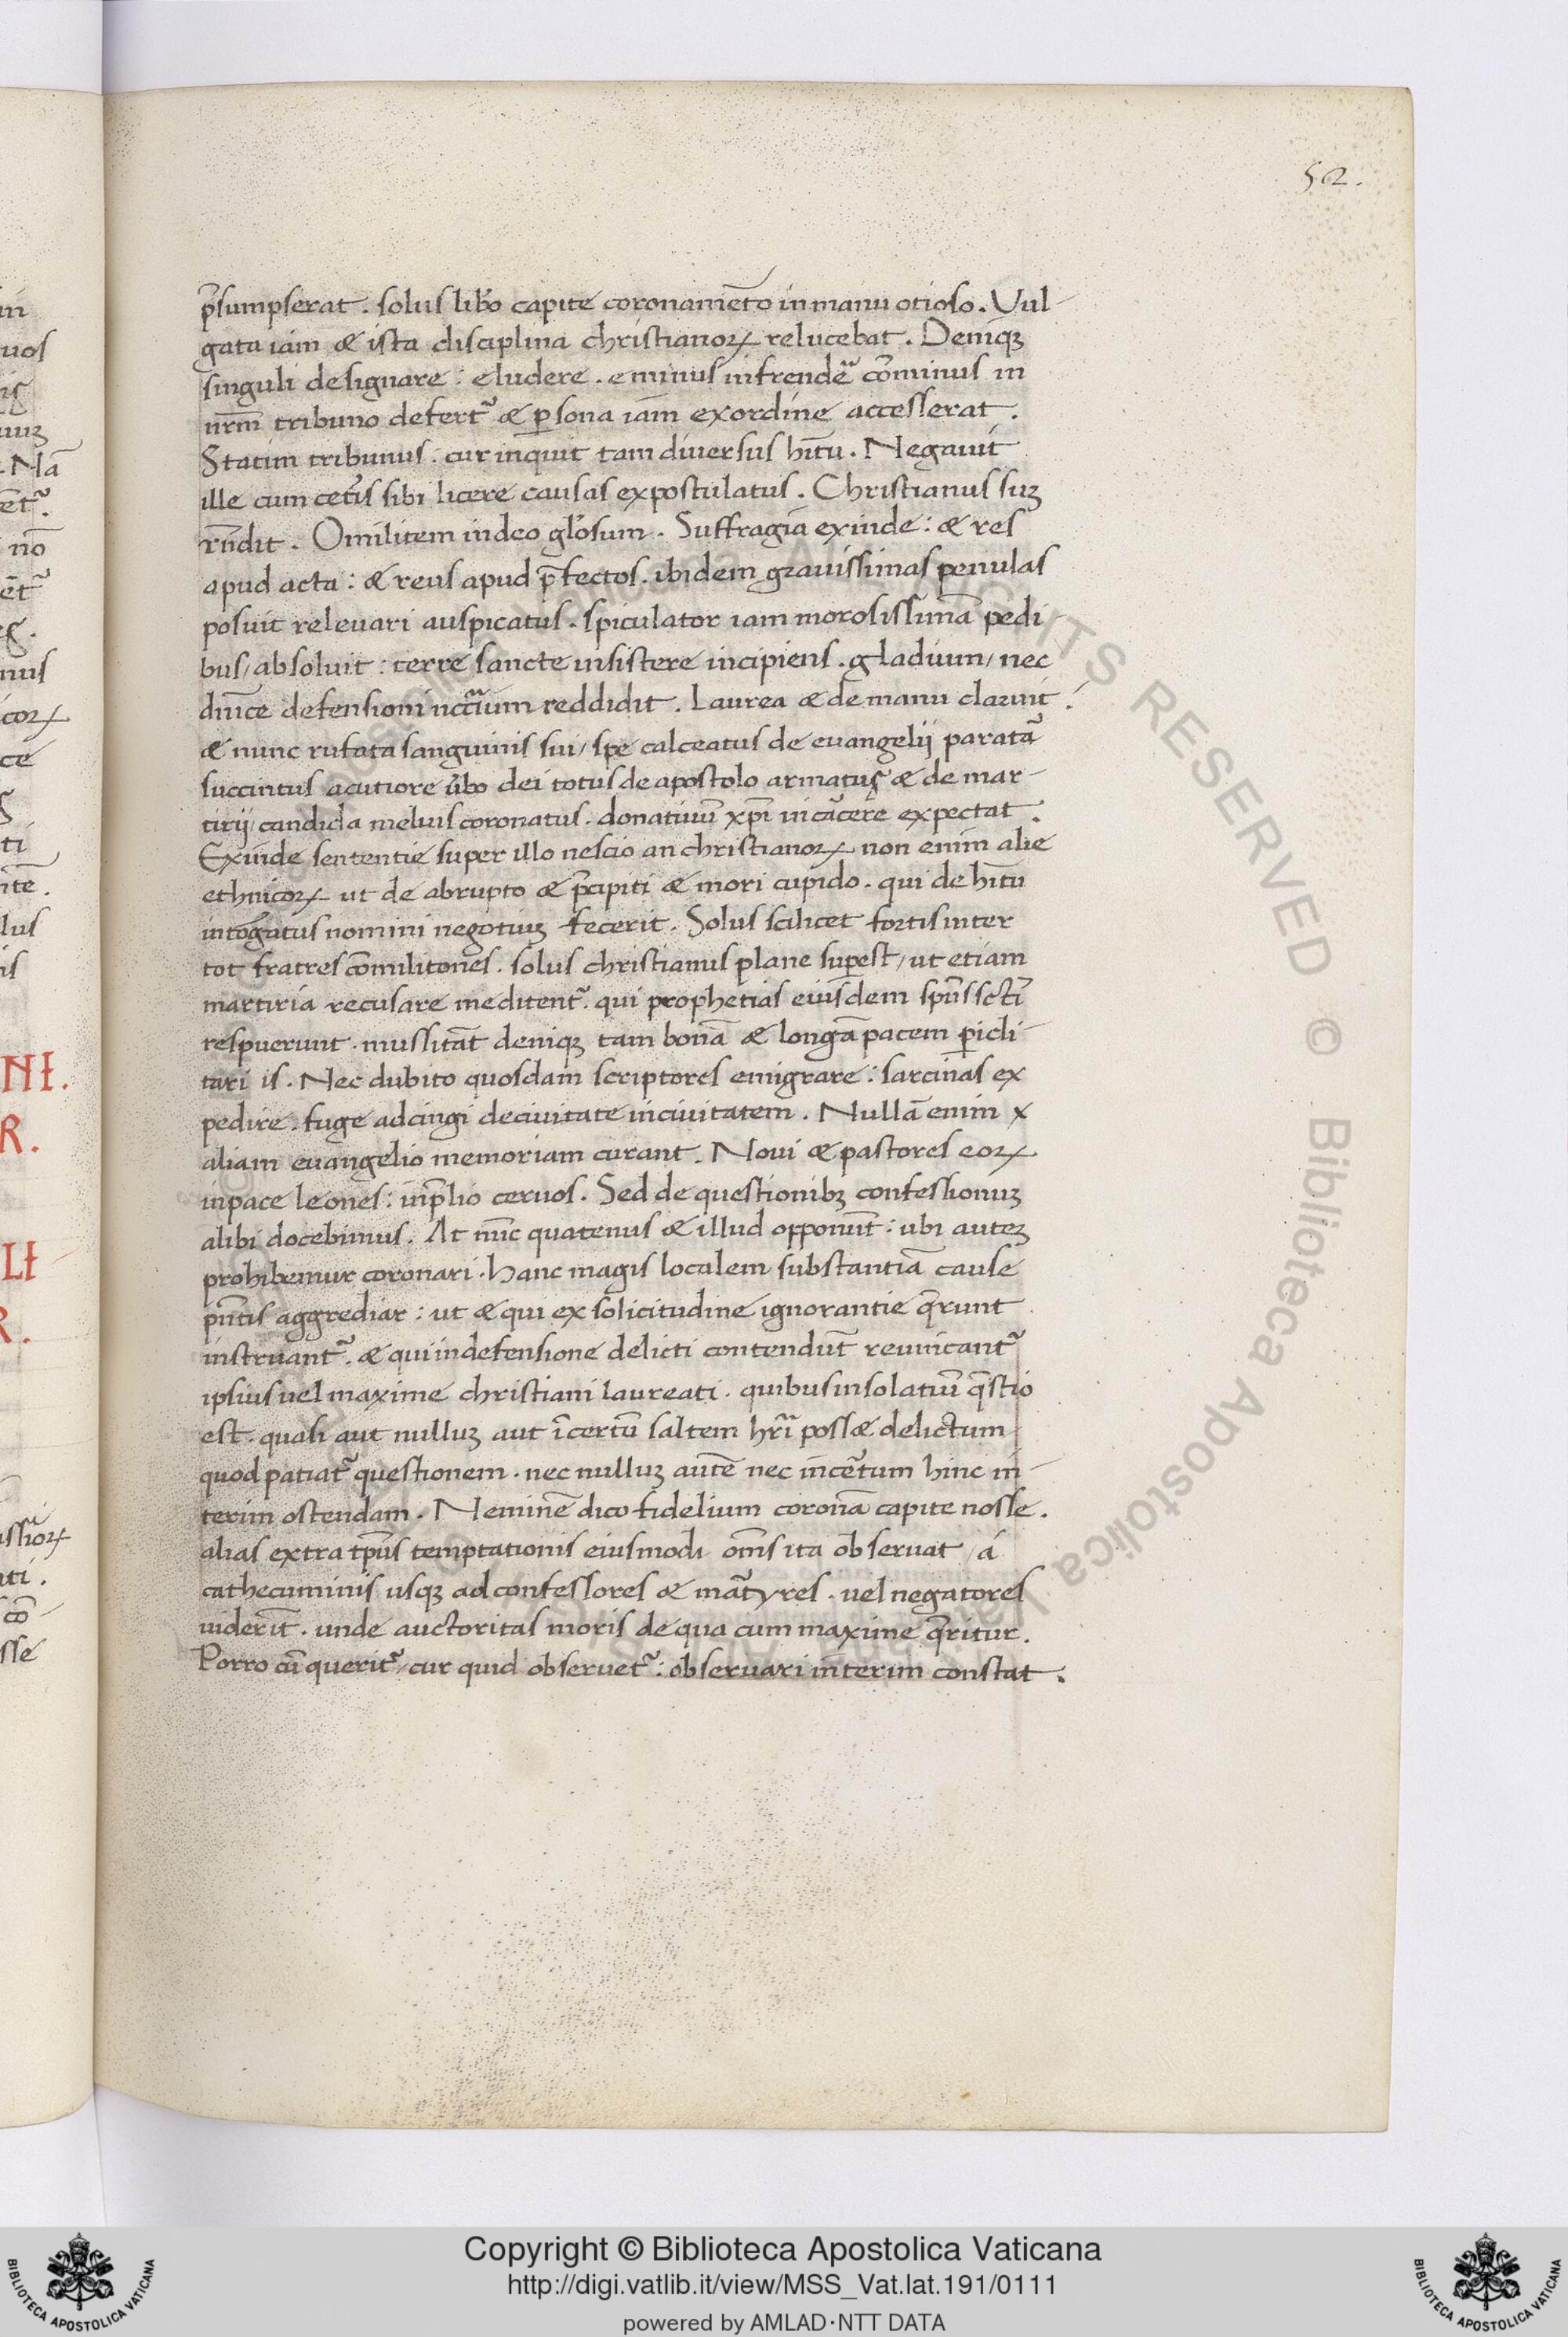 52.
p̄sumpserat. solus libo᷒ capite coronamēto in manu otioso. Vul-
gata iam & ista disciplina christianoꝝ relucebat. Deniqꝫ
singuli designare: eludere. eminus infrende᷑ cōminus in
nrm̄ tribuno defert᷑ & ꝑsona iam exordine accesserat.
Statim tribunus. cur inquit tam diversus hītu. Negavit
ille cum cet᷒is sibi licere causas expostulatus. Christianus suꝫ
rn̄dit. O militem indeo glo᷒sum. Suffragia exinde: & res
apud acta: & reus apud p̄fectos. ibidem gravissimas penulas
posuit relevari auspicatus. spiculator iam morosissimā pedi-
bus/ absolvit: terre sancte insistere incipiens. gladium/ nec
dn̄ice defensioni nccīum reddidit. Laurea & de manu claruit:
& nunc rufata sanguinis sui/ spe calceatus de evangelij paratā
succintus acutiore ūbo dei totus de apostolo armatus & de mar-
tirij/ candida melius coronatus. donativū xp̄i in ca᷒cere expectat.
Exinde sententie super illo nescio an christianoꝝ non enim alie
ethnicoꝝ ut de abrupto & p̄cipiti & mori cupido. qui de hītu
intoga᷒tus nomini negotiuꝫ fecerit. Solus scilicet fortis inter
tot fratres cōmilitones. solus christianus plane suꝑest/ ut etiam
martiria recusare meditent᷑. qui prophetias eiusdem spūs sctī
respuerunt. mussitāt deniqꝫ tam bonā & longā pacem ꝑicli-
tari is. Nec dubito quosdam scriptores emigrare: sarcinas ex
pedire. fuge adcingi decivitate incivitatem. Nullā enim x
aliam evangelio memoriam curant. Novi & pastores eoꝝ
inpace leones: inp̄lio cervos. Sed de questionibꝫ confessionuꝫ
alibi docebimus. At nūc quatenus & illud opponūt: ubi auteꝫ
prohibemur coronari. hanc magis localem substantiā cause
pn̄tis aggrediar: ut & qui ex solicitudine ignorantie q̄runt
instruant᷑. & qui indefensione delicti contendūt revincant᷑
ipsius vel maxime christiani laureati. quibus insolatiū q̄stio
est. quasi aut nulluꝫ aut īcertū saltem hr̄i poss& delictum
quod patiat᷑ questionem. nec nulluꝫ autē nec ince᷒tum hinc in-
terim ostendam. Neminē dico fidelium coronā capite nosse.
alias extra tp̄us temptationis eiusmodi om̄s ita observat/ á
cathecuminis usqꝫ ad confessores & ma᷒tyres. vel negatores
viderīt. unde auctoritas moris de qua cum maxime q̄ritur.
Porro cū querit᷑/ cur quid observet᷑: observari interim constat.
Copyright © Biblioteca Apostolica Vaticana
http://digi.vatlib.it/view/MSS_Vat.lat.191/0111
powered by AMLAD·NTT DATA